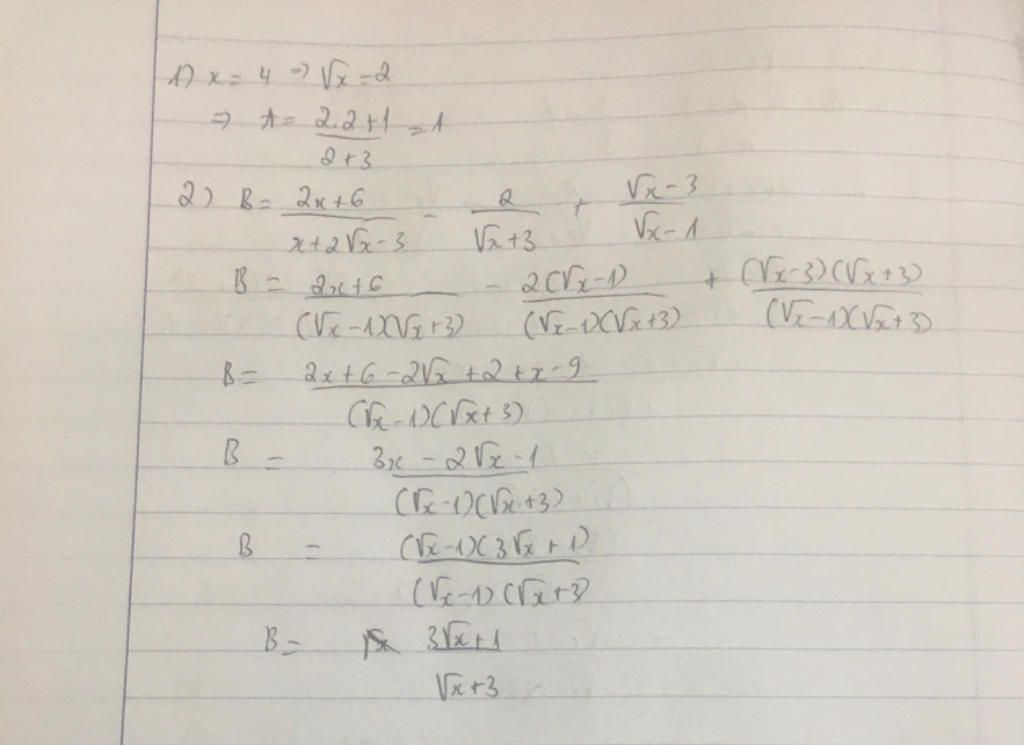 1) x = 4 => √x = 2
=> A = (2.2+1)/(2+3) = 1
2) B = (2x+6)/(x+2√x-3) - 2/(√x+3) + (√x-3)/(√x-1)
B = (2x+6)/((√x-1)(√x+3)) - (2(√x-1))/((√x-1)(√x+3)) + ((√x-3)(√x+3))/((√x-1)(√x+3))
B = (2x+6-2√x+2+x-9)/((√x-1)(√x+3))
B = (3x-2√x-1)/((√x-1)(√x+3))
B = ((√x-1)(3√x+1))/((√x-1)(√x+3))
B = (3√x+1)/(√x+3)